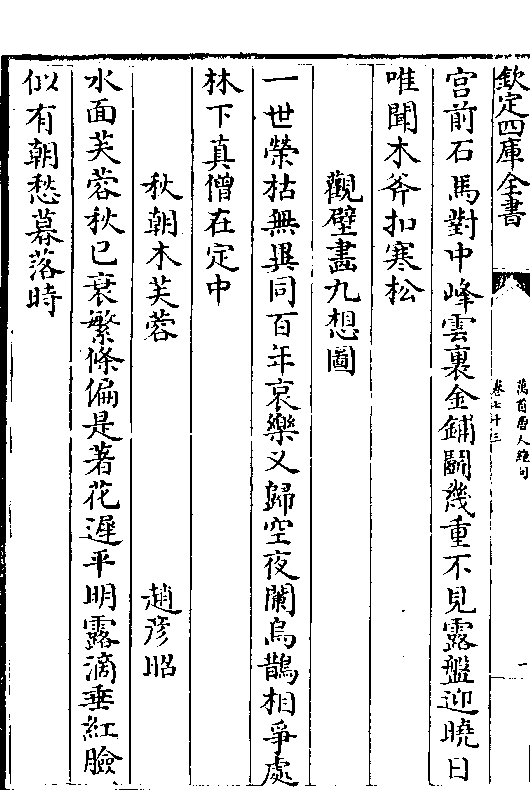 欽定四庫全書
萬首唐人絶句
卷七十三
宫前石馬對中峰雲裏金鋪閟幾重不見露盤迎曉日
唯聞木斧扣寒松
觀壁畫九想圖
一世榮枯無異同百年哀樂又歸空夜闌鳥鵲相爭處
林下真僧在定中
秋朝木芙蓉 趙彦昭
水面芙蓉秋已衰繁條偏是著花遲平明露滴垂紅臉
似有朝愁暮落時